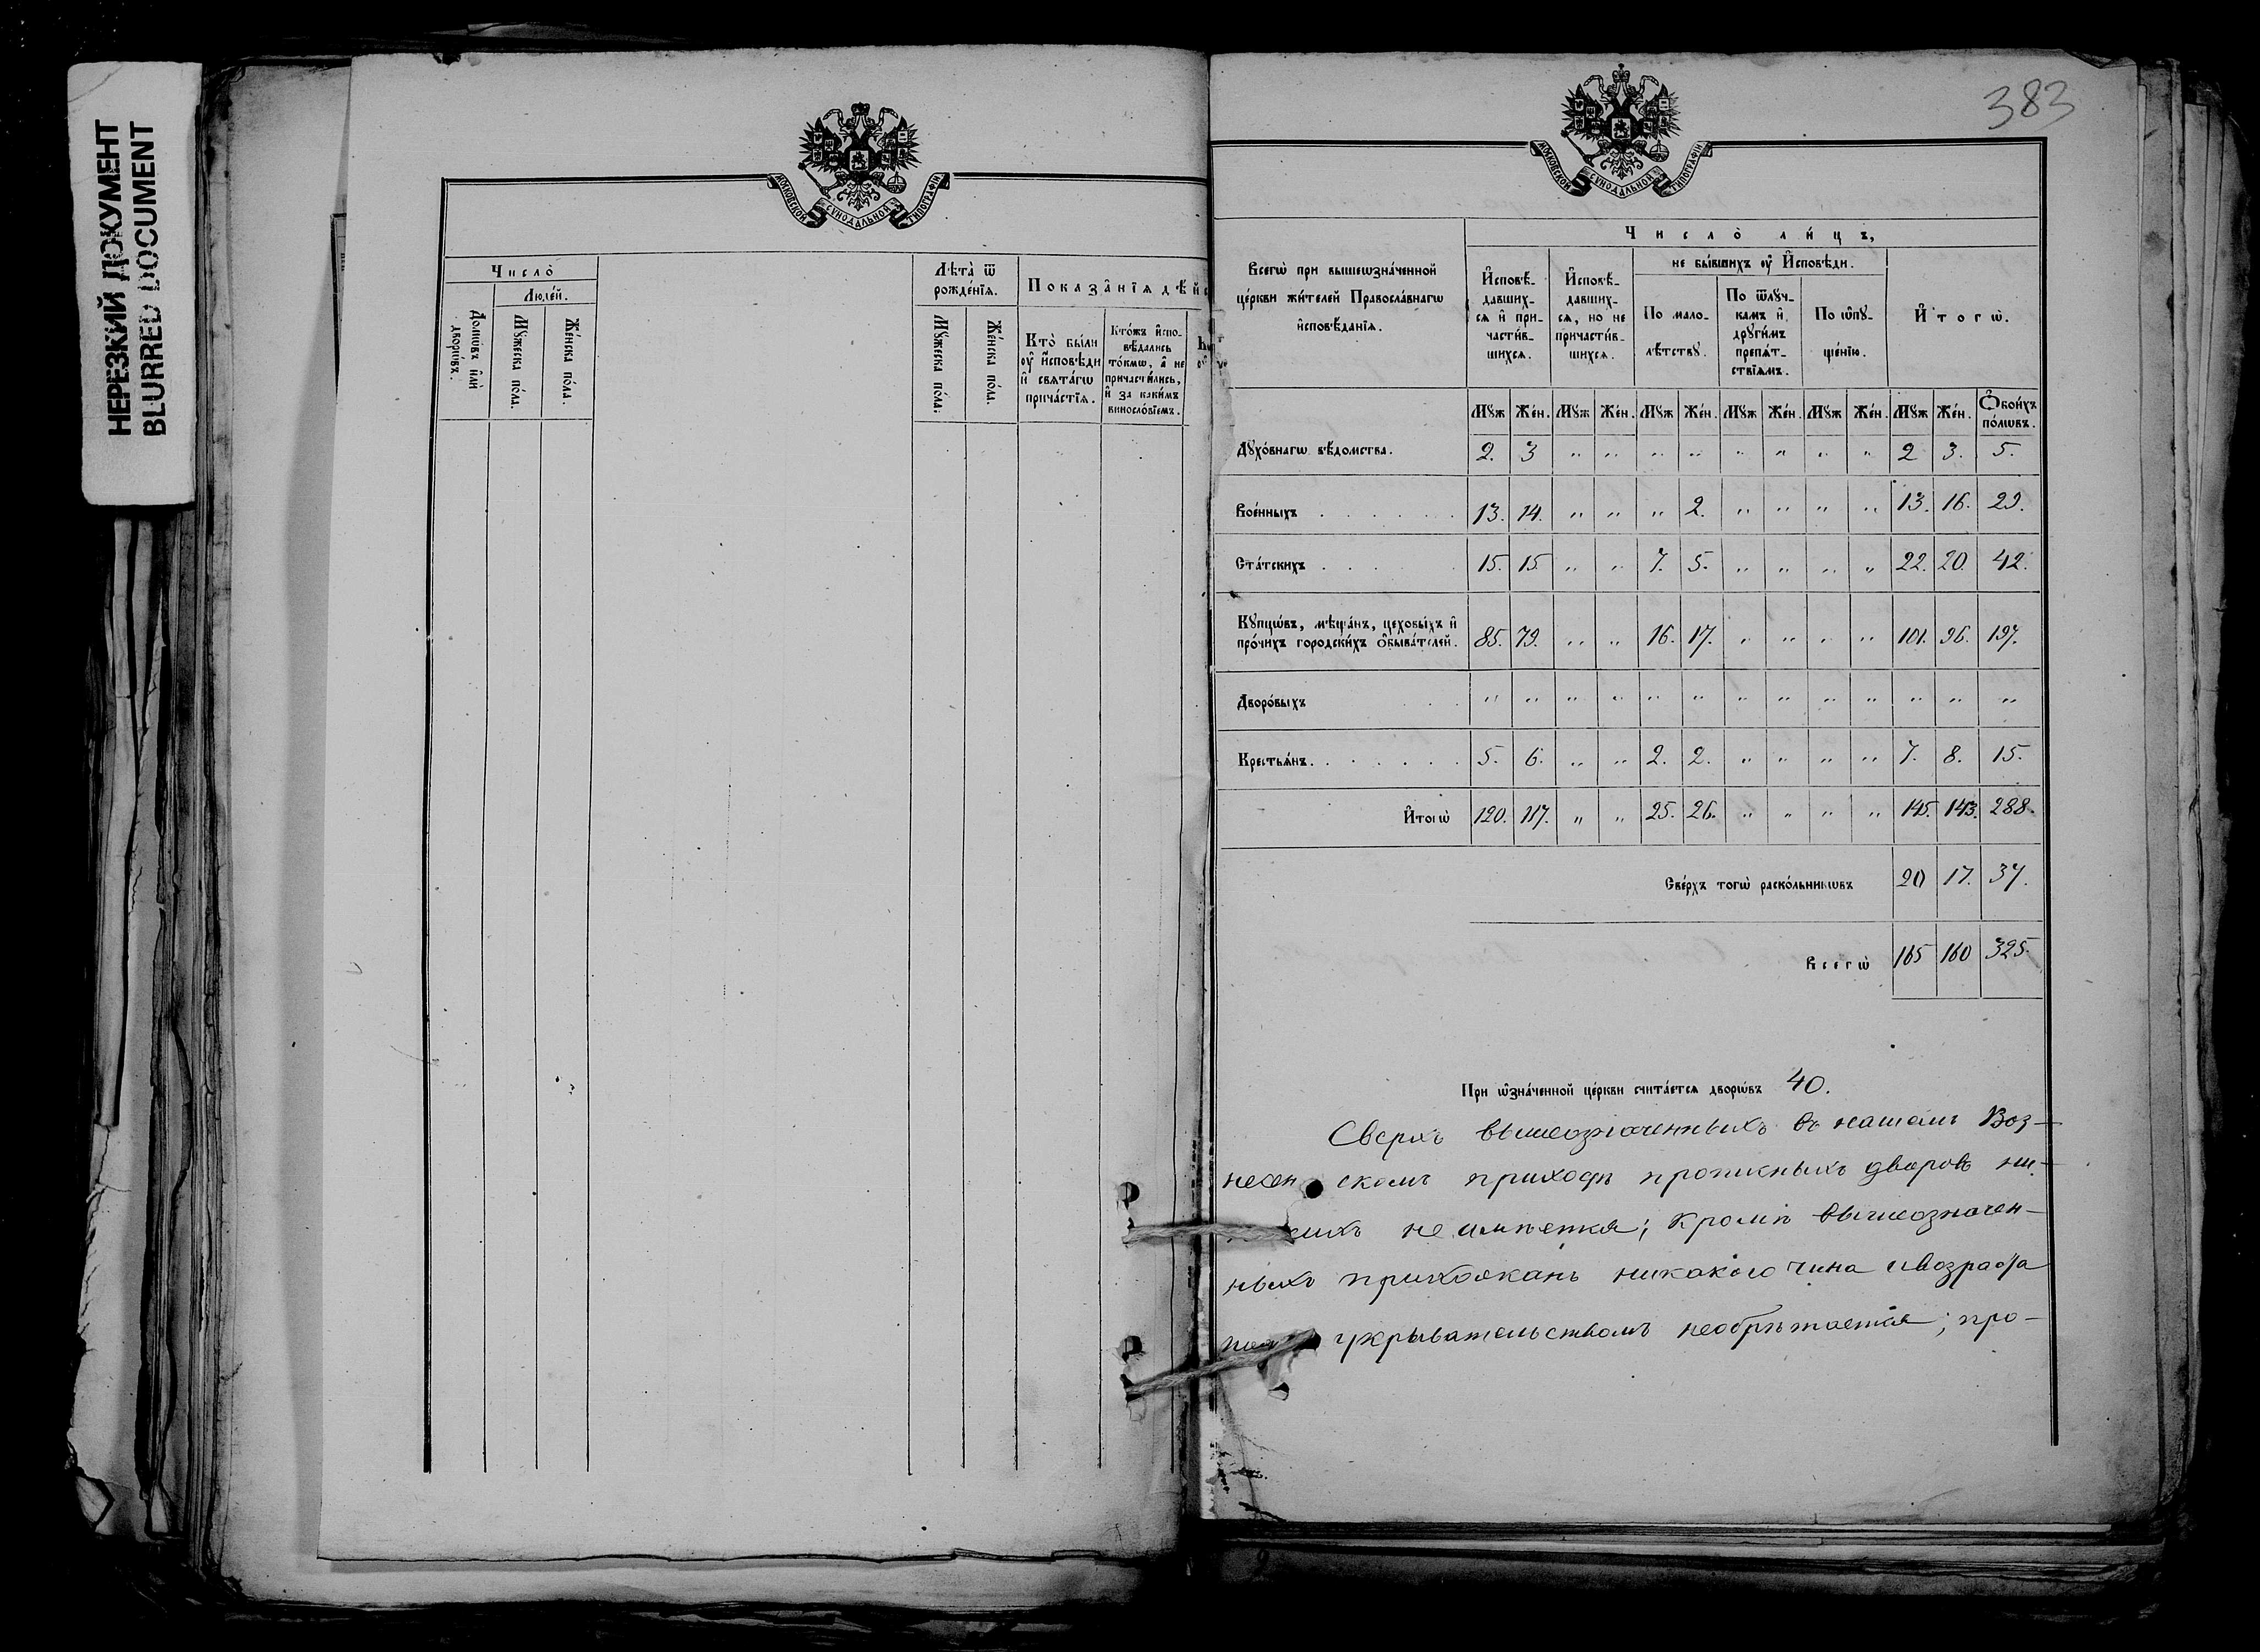 НЕРЕЗКИЙ ДОКУМЕНТ
BLURRED DOCUMENT
МОСКОВСКОЙ СѴНОДАЛЬНОЙ ТИПОГРАФІИ
Число̀
Люде́й.
Домѡ́въ и҆лѝ дворѡ́въ.
Мꙋ́жеска по́ла.
Же́нска по́ла.
Лѣ́та ѿ рожде́нїѧ.
Мꙋ́жеска по́ла.
Же́нска по́ла.
Показа̂нїѧ дѣ́йс
Кто̀ бы́ли
ᲂу҆ и҆́сповѣди
и҆ свѧта́гѡ
прича́стїѧ.
Кто́жъ и҆спо-
вѣ́дались
то́кмѡ, а҆ не
причасти́лись,
и҆ за каки́мъ
винослові́емъ.
383
МОСКОВСКОЙ СѴНОДАЛЬНОЙ ТИПОГРАФІИ
Число̀ ли́цъ,
Всегѡ̀ при вышеѡзна́ченной
це́ркви жи́телей Правосла́внагѡ
и҆сповѣ́данїѧ.
И҆сповѣ́-
давших-
сѧ и҆ при-
части́в-
шихсѧ.
И҆сповѣ́-
давших-
сѧ, но не
причасти́в-
шихсѧ.
не бы́вшихъ ᲂу҆ И҆́сповѣди.
По мало-
лѣ́тствꙋ.
По ѿлꙋ́ч-
камъ и҆
дрꙋги̑мъ
препѧ́т-
ствїѧмъ.
По ѡ҆пꙋ-
ще́нїю.
И҆то́гѡ.
Мꙋж Же́н. Мꙋж Же́н. Мꙋж Же́н. Мꙋж Же́н. Мꙋж Же́н. Мꙋж Же́н. Ѻ҆бои́хъ по́лѡвъ.
Дꙋхо́внагѡ вѣ́домства. 2. 3 „ „ „ „ „ „ „ „ 2 3. 5.
Вое́нныхъ . . . . . . 13. 14. „ „ „ 2. „ „ „ „ 13. 16. 29.
Ста́тскихъ . . . . . 15. 15. „ „ 7. 5. „ „ „ „ 22. 20. 42.
Кꙋпцѡ́въ, мѣща́нъ, цеховы́хъ и҆
про́чихъ городски́хъ ѻ҆быва́телей. 85. 79. „ „ 16. 17. „ „ „ „ 101. 96. 197.
Дворо́выхъ . . . „ „ „ „ „ „ „ „ „ „ „ „ „
Крестьѧ́нъ. . . . . . . 5. 6. „ „ 2. 2. „ „ „ „ 7. 8. 15.
И҆тогѡ̀ 120. 117. „ „ 25. 26. „ „ „ „ 145. 143. 288.
Све́рхъ тогѡ̀ раско́льникѡвъ 20 17. 37.
Всегѡ̀ 165 160 325.
При ѡ҆зна́ченной це́ркви счита́етсѧ дворѡ́въ 40.
Сверхъ вышеозначенныхъ въ нашемъ Воз-
несенскомъ приходѣ прописныхъ дворовъ ни-
не имѣется; кромѣ вышеозначен-
ныхъ прихожанъ никакого чина и возраста
укрывательствомъ необрѣтается; про-